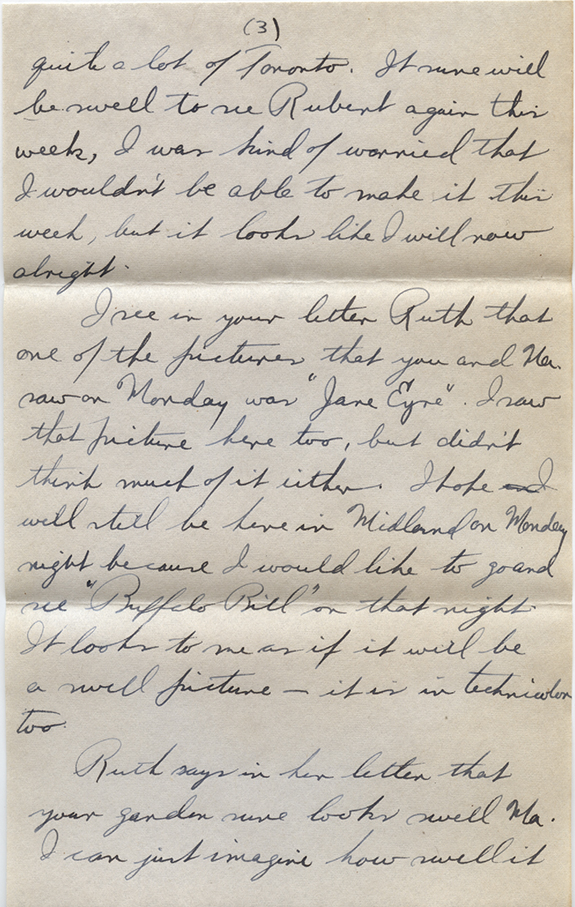 (3)
quite a lot of Toronto. It sure will
be swell to see Rubert again this
week, I was kind of worried that
I wouldn't be able to make it this
week, but it looks like I will now
alright.
I see in your letter Ruth that
one of the pictures that you and Ma.
saw on Monday was "Jane Eyre". I saw
that picture here too, but didn't
think much of it either. I hope I
will still be here in Midland on Monday
night because I would like to go and
see "Buffalo Bill" on that night
It looks to me as if it will be
a swell picture — it is in technicolor
too.
Ruth says in her letter that
your garden sure looks swell Ma.
I can just imagine how swell it